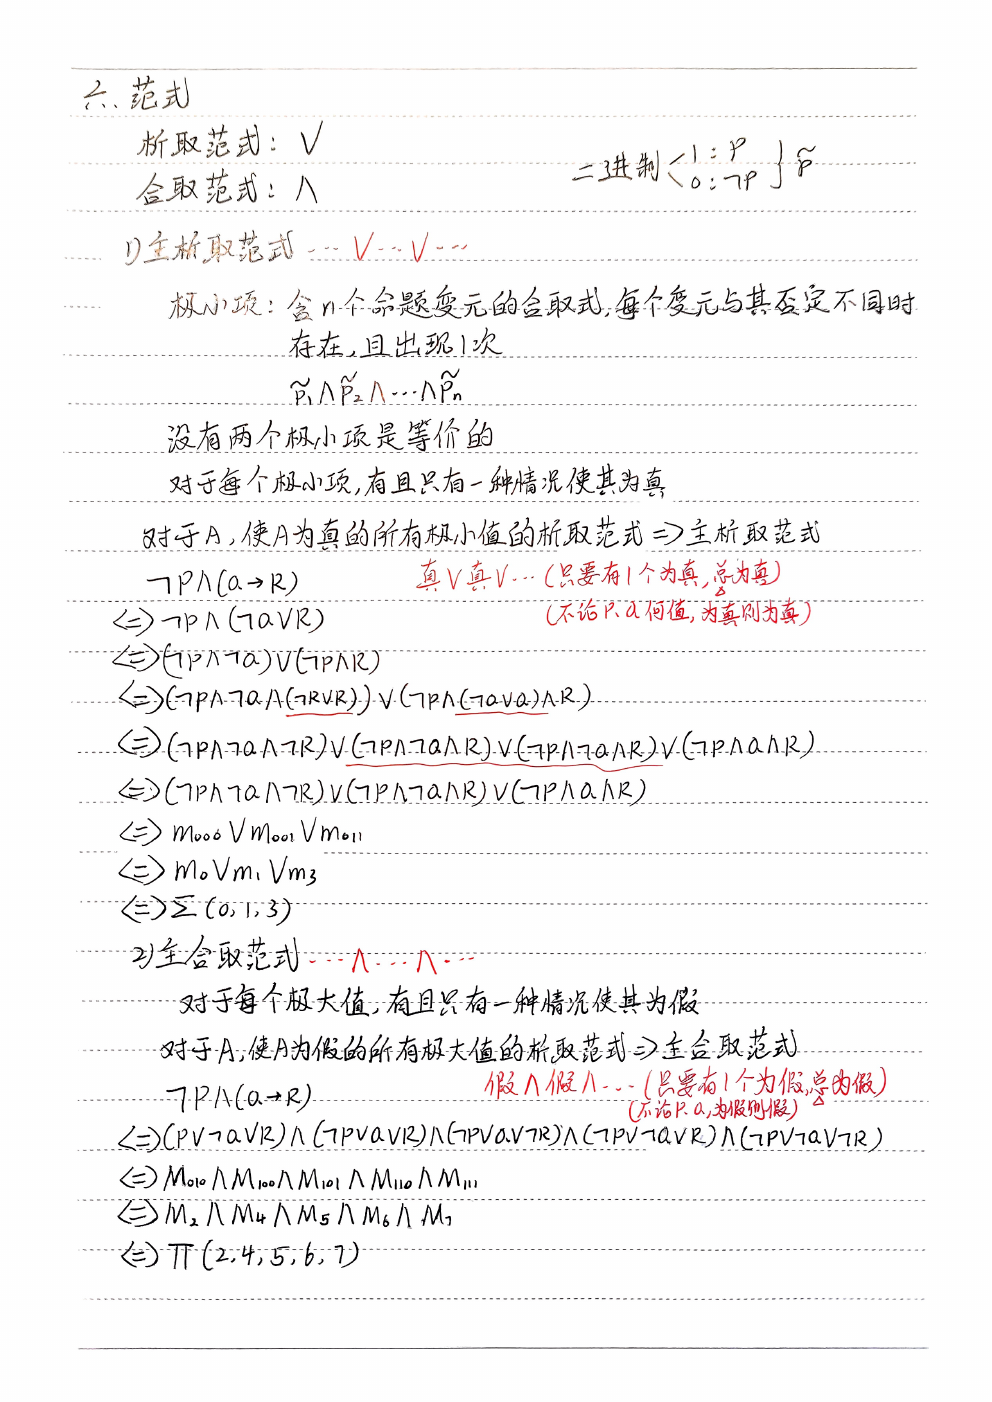 六、范式
析取范式：∨
合取范式：∧
二进制 < 1：P 0：¬P } p̃
1) 主析取范式 ··· ∨ ··· ∨ ···
极小项：含n个命题变元的合取式，每个变元与其否定不同时
存在，且出现1次
p̃₁∧p̃₂∧···∧p̃ₙ
没有两个极小项是等价的
对于每个极小项，有且只有一种情况使其为真
对于A，使A为真的所有极小值的析取范式 => 主析取范式
¬P∧(Q→R)
真∨真∨··· (只要有1个为真，总为真)
(不论P、Q何值，为真则为真)
<=> ¬P∧(¬Q∨R)
<=> (¬P∧¬Q)∨(¬P∧R)
<=> (¬P∧¬Q∧(¬R∨R))∨(¬P∧(¬Q∨Q)∧R)
<=> (¬P∧¬Q∧¬R)∨(¬P∧¬Q∧R)∨(¬P∧¬Q∧R)∨(¬P∧Q∧R)
<=> (¬P∧¬Q∧¬R)∨(¬P∧¬Q∧R)∨(¬P∧Q∧R)
<=> m₀₀₀∨m₀₀₁∨m₀₁₁
<=> m₀∨m₁∨m₃
<=> Σ(0,1,3)
2) 主合取范式 ··· ∧ ··· ∧ ···
对于每个极大值，有且只有一种情况使其为假
对于A，使A为假的所有极大值的析取范式 => 主合取范式
¬P∧(Q→R)
假∧假∧··· (只要有1个为假，总为假)
(不论P、Q，为假则假)
<=> (P∨¬Q∨R)∧(¬P∨Q∨R)∧(¬P∨Q∨¬R)∧(¬P∨¬Q∨R)∧(¬P∨¬Q∨¬R)
<=> M₀₁₀∧M₁₀₀∧M₁₀₁∧M₁₁₀∧M₁₁₁
<=> M₂∧M₄∧M₅∧M₆∧M₇
<=> Π(2,4,5,6,7)